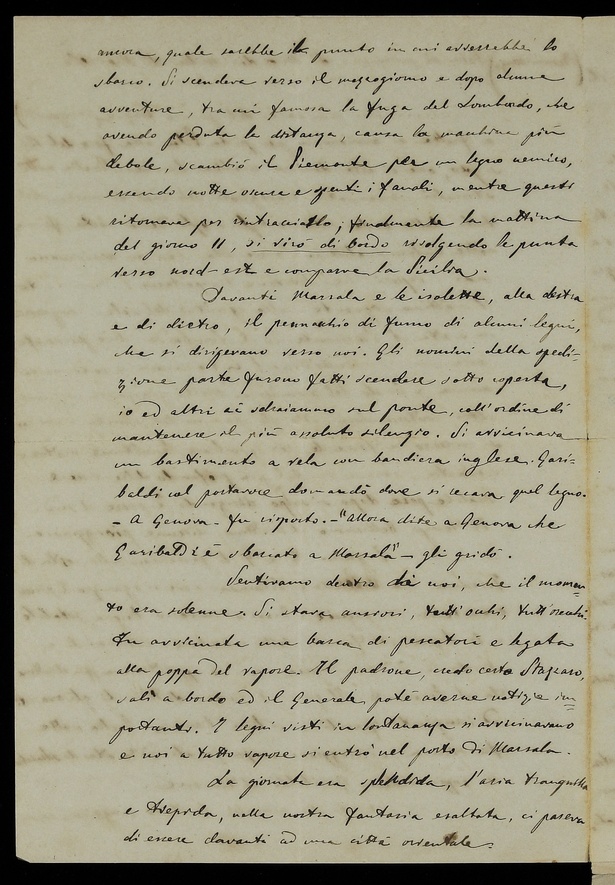 ancora, quale sarebbe il punto in cui avverrebbe lo
sbarco. Si scendeva verso il mezzogiorno e dopo alcune
avventure, tra cui famosa la fuga del Lombardo, che
avendo perduta la distanza, causa la macchina più
debole, scambiò il Piemonte per un legno nemico,
essendo notte oscura e spenti i fanali, mentre questi
ritornava per rintracciarlo; finalmente la mattina
del giorno 11, si virò di bordo rivolgendo la punta
verso nord-est e comparve la Sicilia.
Davanti Marsala e le isolette, alla destra
e di dietro, il pennacchio di fumo di alcuni legni,
che si dirigevano verso noi. Gli uomini della spedi=
zione parte furono fatti scendere sotto coperta,
io ed altri ci sdraiammo sul ponte, coll'ordine di
mantenere il più assoluto silenzio. Si avvicinava
un bastimento a vela con bandiera inglese. Gari=
baldi col portavoce domandò dove si recava quel legno.
- A Genova - fu risposto. - "Allora dite a Genova che
Garibaldi è sbarcato a Marsala" - gli gridò.
Sentivamo dentro di noi, che il momen=
to era solenne. Si stava ansiosi, tutt'occhi, tutt'orecchi.
Fu avvicinata una barca di pescatori e legata
alla poppa del vapore. Il padrone, credo certo Strazzaro,
salì a bordo ed il Generale poté averne notizie im=
portanti. I legni visti in lontananza si avvicinavano
e noi a tutto vapore si entrò nel porto di Marsala.
La giornata era splendida, l'aria tranquilla
e tiepida, nella nostra fantasia esaltata, ci pareva
di essere davanti ad una città orientale.